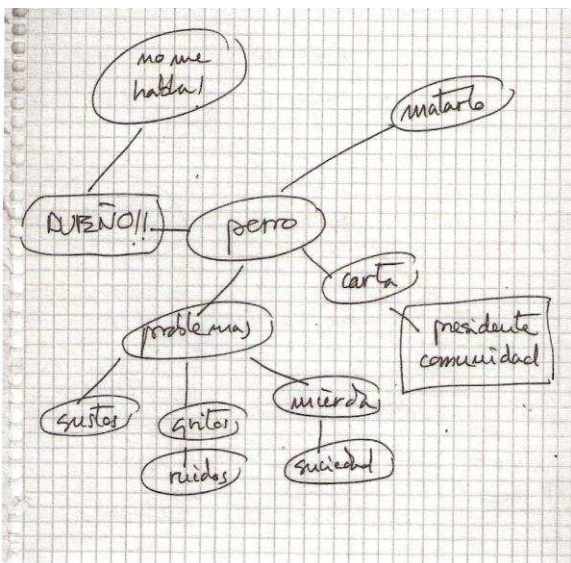 no me
habla!
matarlo
DUEÑO!!
perro
carta
presidente
comunidad
problemas
sustos
gritos
ruidos
mierda
suciedad